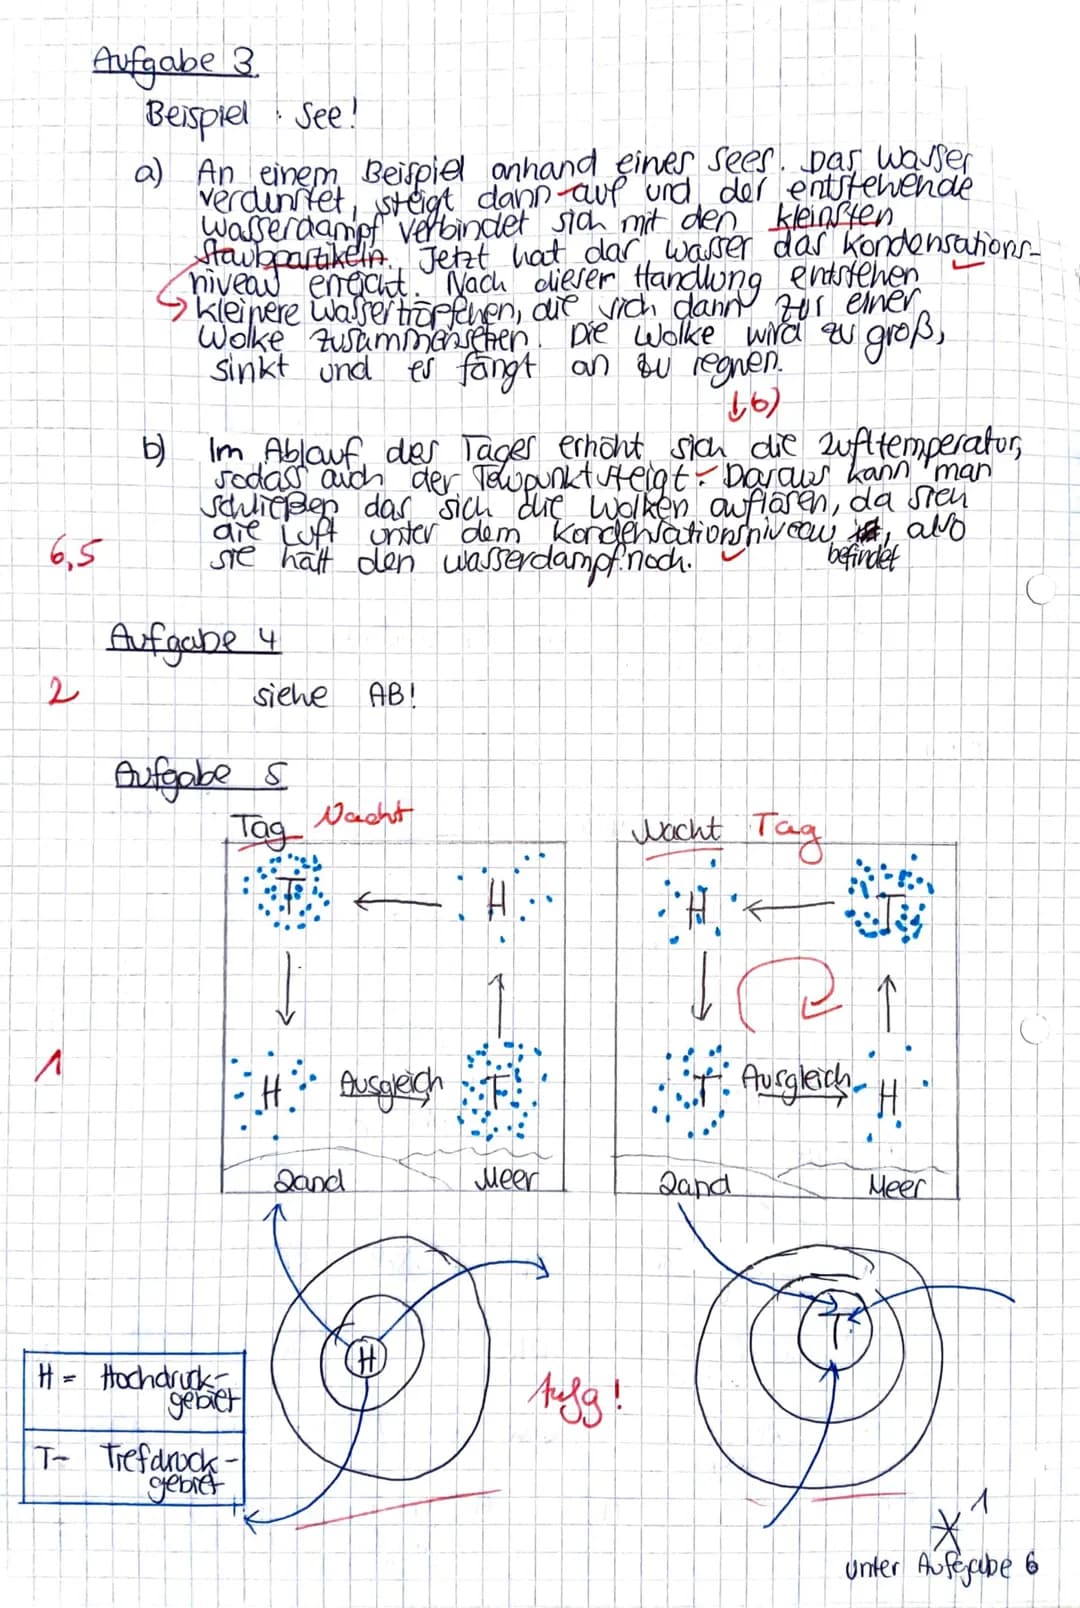 Aufgabe 3
Beispiel : See!
a) An einem Beispiel anhand eines Sees. Das Wasser
verdunstet, steigt dann auf und der entstehende
Wasserdampf verbindet sich mit den kleinsten
Staubpartikeln. Jetzt hat das Wasser das Kondensations-
niveau erreicht. Nach dieser Handlung entstehen
kleinere Wassertröpfchen, die sich dann zur einer
Wolke zusammensetzen. Die Wolke wird zu groß,
sinkt und es fängt an zu regnen.
↓b)
b) Im Ablauf des Tages erhöht sich die Lufttemperatur,
sodass auch der Taupunkt steigt. Daraus kann man
schließen das sich die Wolken auflösen, da sich
die Luft unter dem Kondensationsniveau, also
befindet
6,5
sie hält den Wasserdampf noch.
Aufgabe 4
2
siehe AB!
Aufgabe 5
Tag Nacht
Nacht Tag
T ← H
H ← T
1
H Ausgleich T
T Ausgleich H
Land Meer
Land Meer
H = Hochdruck-
gebiet
T- Tiefdruck-
gebiet
H
Aufg!
T
1
unter Aufgabe 6